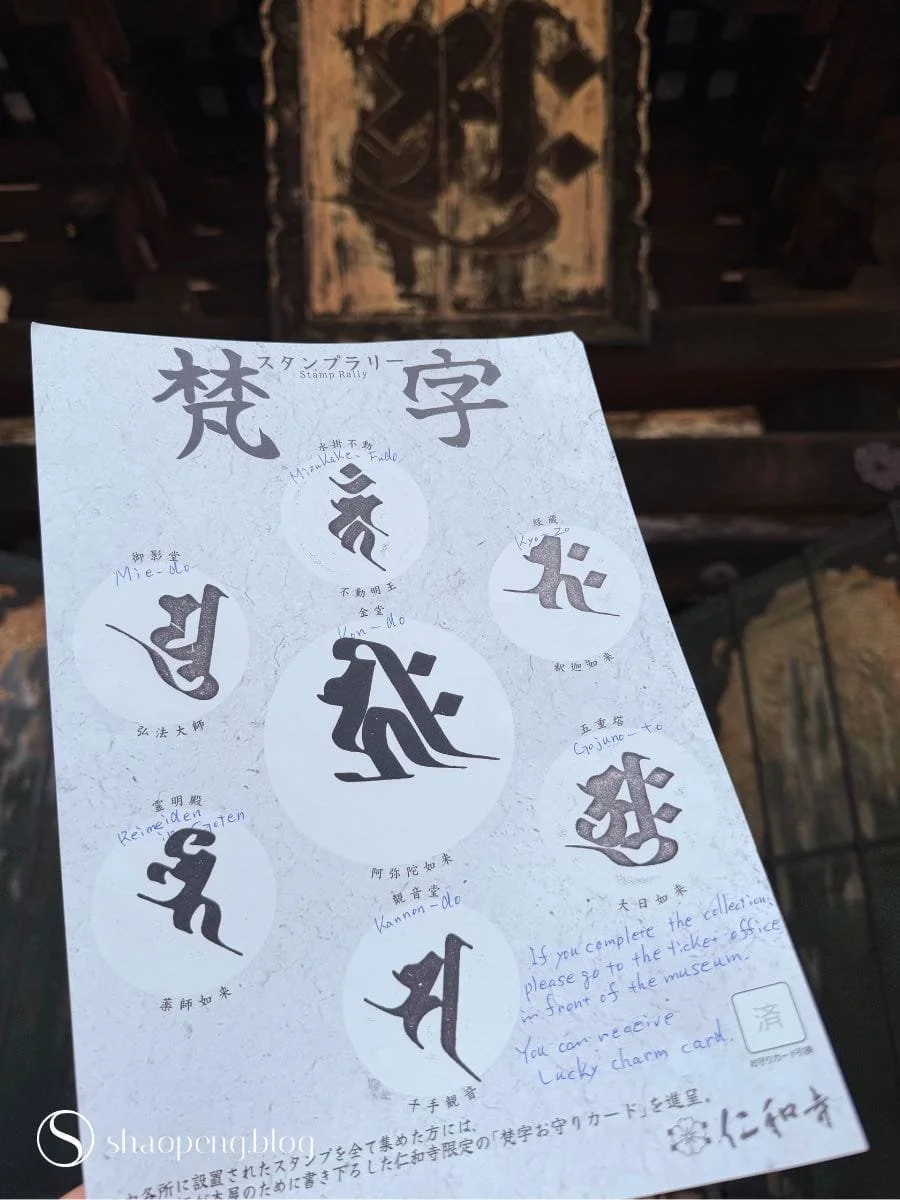 梵字
スタンプラリー
Stamp Rally
水掛不動
Mizukake-Fudo
不動明王
経蔵
Kyo-zo
釈迦如来
御影堂
Mie-do
弘法大師
金堂
Kon-do
阿弥陀如来
五重塔
Gojuno-to
大日如来
霊明殿
Reimeiden
in Goten
薬師如来
観音堂
Kannon-do
千手観音
If you complete the collection,
please go to the ticket office
in front of the museum.
You can receive
Lucky charm card.
済
お守りカード引換
各所に設置されたスタンプを全て集めた方には、
のために書き下ろした仁和寺限定の「梵字お守りカード」を進呈。
仁和寺
shaopeng.blog